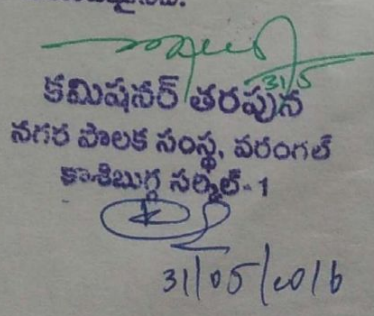 31/5
కమిషనర్ తరపున
నగర పాలక సంస్థ, వరంగల్
కాశిబుగ్గ సర్కిల్-1
31/05/2016